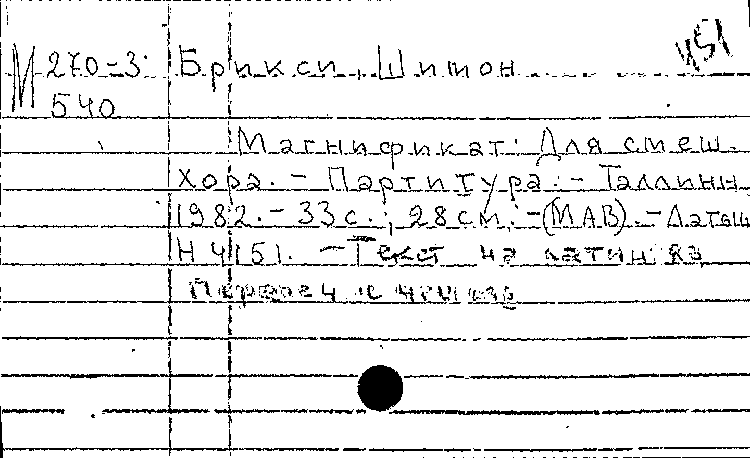 451
М 270-3 Брикси, Шимон
540
Магнификат: Для смеш.
хора. - Партитура. - Таллинн
1982. - 33 с.; 28 см. - (МАВ). -
Н 4151. - Текст на латин. яз